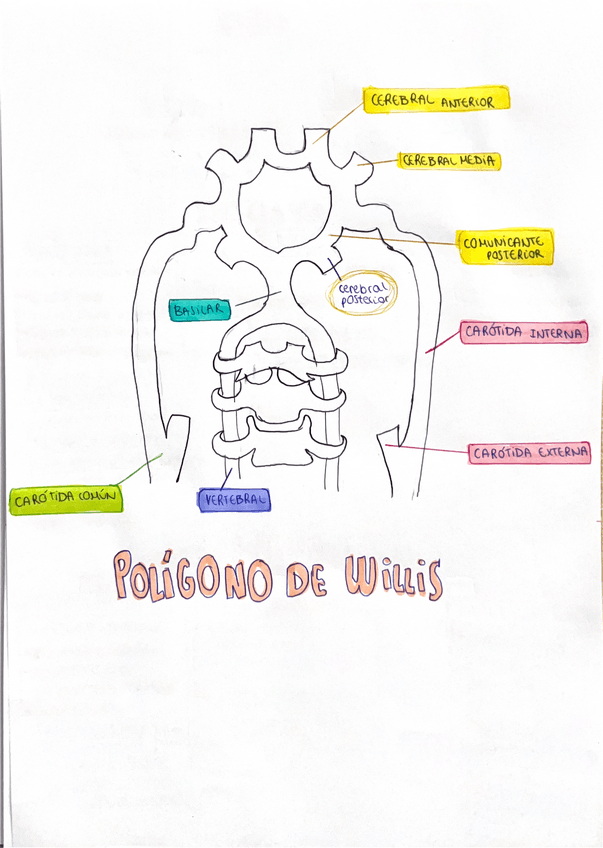 CEREBRAL ANTERIOR
CEREBRAL MEDIA
COMUNICANTE
POSTERIOR
cerebral
posterior
BASILAR
CARÓTIDA INTERNA
CARÓTIDA EXTERNA
CARÓTIDA COMÚN
VERTEBRAL
POLÍGONO DE WILLIS